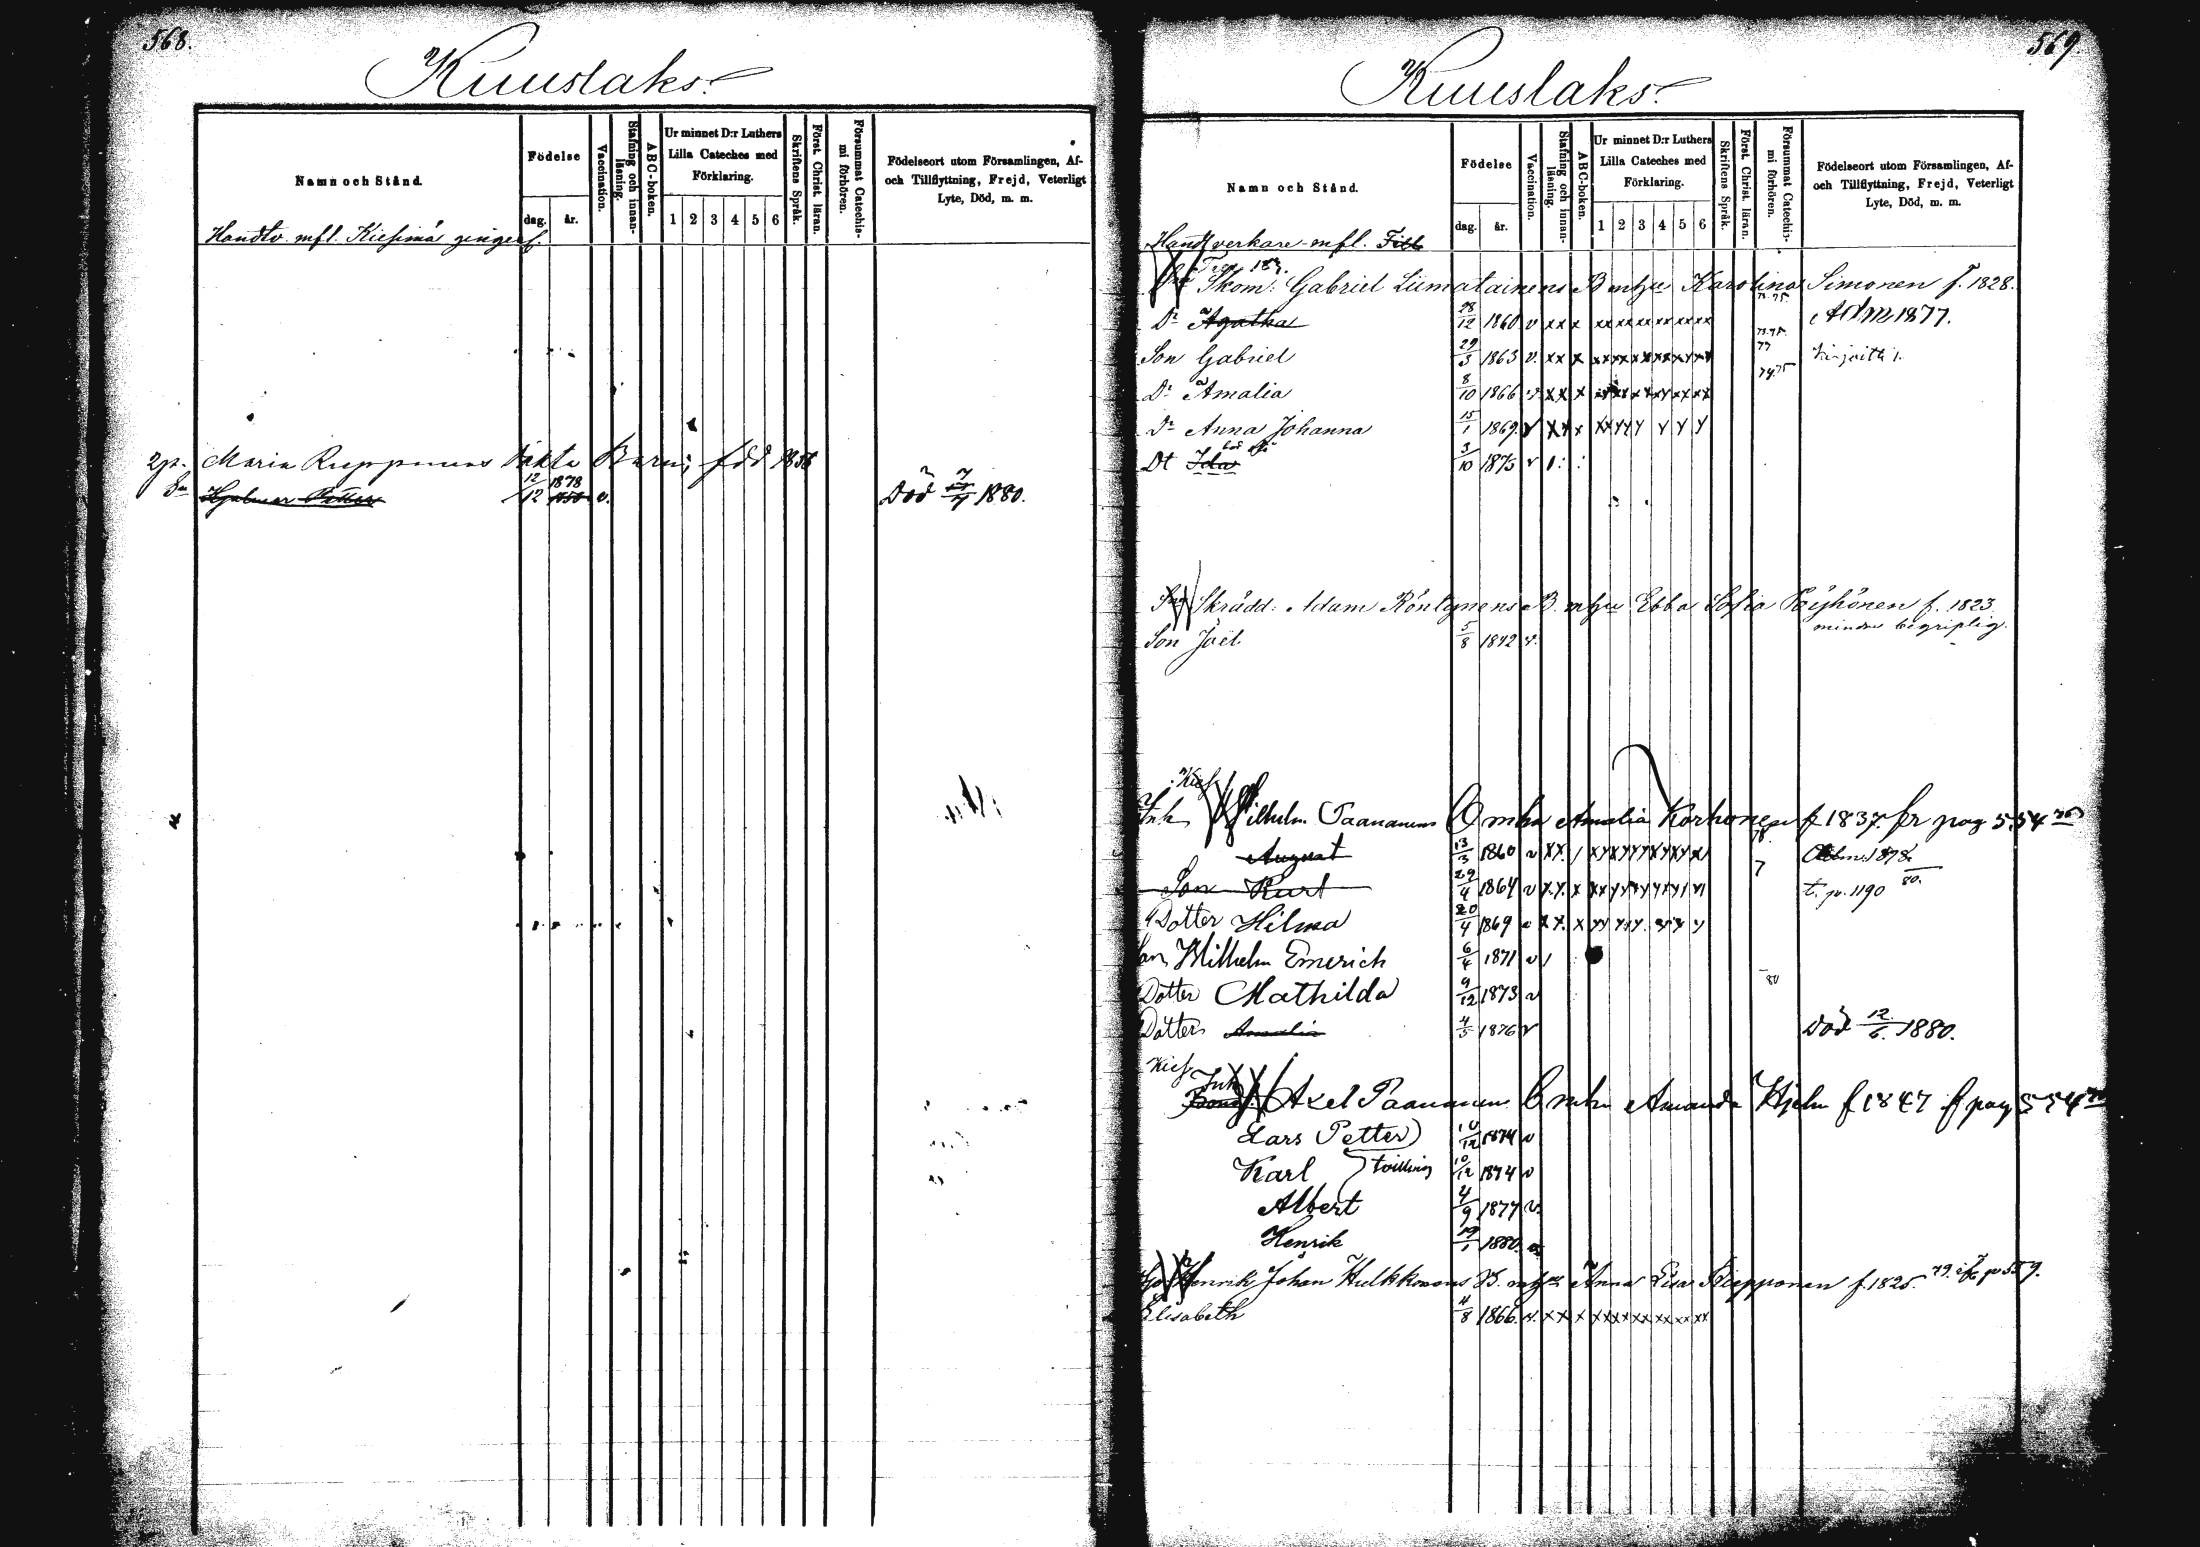 568.
Kuuslaks.
Namn och Stånd.
Födelse
dag. år.
Vaccination.
Stafning och innan-läsning.
ABC-boken.
Ur minnet D:r Luthers
Lilla Cateches med
Förklaring.
1 2 3 4 5 6
Skriftens Språk.
Först. Christ. läran.
Försummat Catechis-
mi förhören.
Födelseort utom Församlingen, Af-
och Tillflyttning, Frejd, Veterligt
Lyte, Död, m. m.
Handtv. mfl. Kiesimä
Maria Ruppunens Oäkta Barn; född 1858
Hjalmar Petter 12/12 1878 v. Död 7/7 1880.
569.
Kuuslaks.
Namn och Stånd.
Födelse
dag. år.
Vaccination.
Stafning och innan-läsning.
ABC-boken.
Ur minnet D:r Luthers
Lilla Cateches med
Förklaring.
1 2 3 4 5 6
Skriftens Språk.
Först. Christ. läran.
Försummat Catechis-
mi förhören.
Födelseort utom Församlingen, Af-
och Tillflyttning, Frejd, Veterligt
Lyte, Död, m. m.
Handtverkare mfl.
Skom: Gabriel Liimatainens B mhu Karolina Simonen f. 1828.
Dr Agatha 28/12 1860 v xx x xx xx xx xx xx xx Adm 1877.
Son Gabriel 29/3 1863 v. xx x
Dr Amalia 8/10 1866 v xx x
Dr Anna Johanna 15/1 1869. v xx x
Dt Ida 3/10 1875 v
Skrädd: Adam Röntynens B. mhu Ebba Sofia Pöyhönen f. 1823.
mindre begriplig.
Son Joel 5/8 1842 v.
Inh Wilhelm Paananens mhu Amalia Korhonen f 1837. fr pag 554
August 13/3 1860 v xx Adm. 1878.
Son Karl 29/4 1864 v x.x. x t. p. 1190 80.
Dotter Hilma 20/4 1869 v xx. x
Wilhelm Emerich 6/4 1871 v
Dotter Mathilda 9/12 1873 v 80
Dotter Amalia 4/5 1876 v Död 12/6 1880.
Inh
Axel Paananen mhu Amanda Hjelm f 1847 f pag 554
Lars Petter 10/12 1874 v
Karl tvilling 10/12 1874 v
Albert 4/9 1877 v.
Henrik 19/1 1880.
Henrik Johan Hulkkonens B. mhu Anna Lisa Piepponen f. 1825.
Elisabeth 4/8 1866. v. xx x xx xx xx xx xx xx